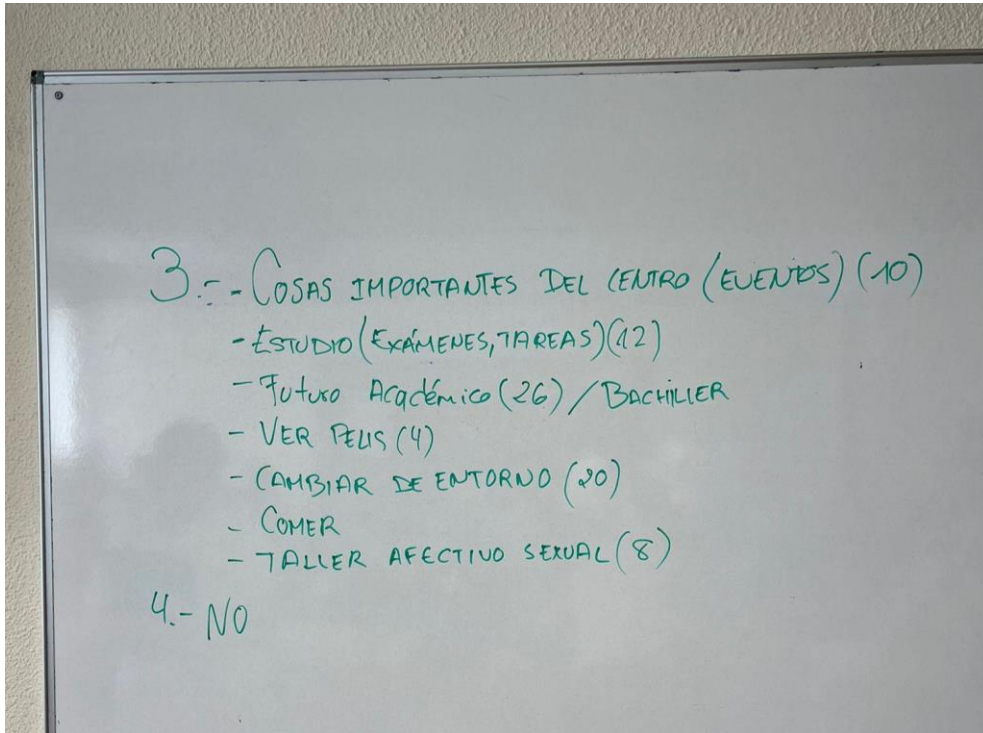 3.- - COSAS IMPORTANTES DEL CENTRO (EVENTOS) (10)
- ESTUDIO (EXÁMENES, TAREAS) (12)
- Futuro Académico (26) / BACHILLER
- VER PELIS (4)
- CAMBIAR DE ENTORNO (20)
- COMER
- TALLER AFECTIVO SEXUAL (8)
4.- NO